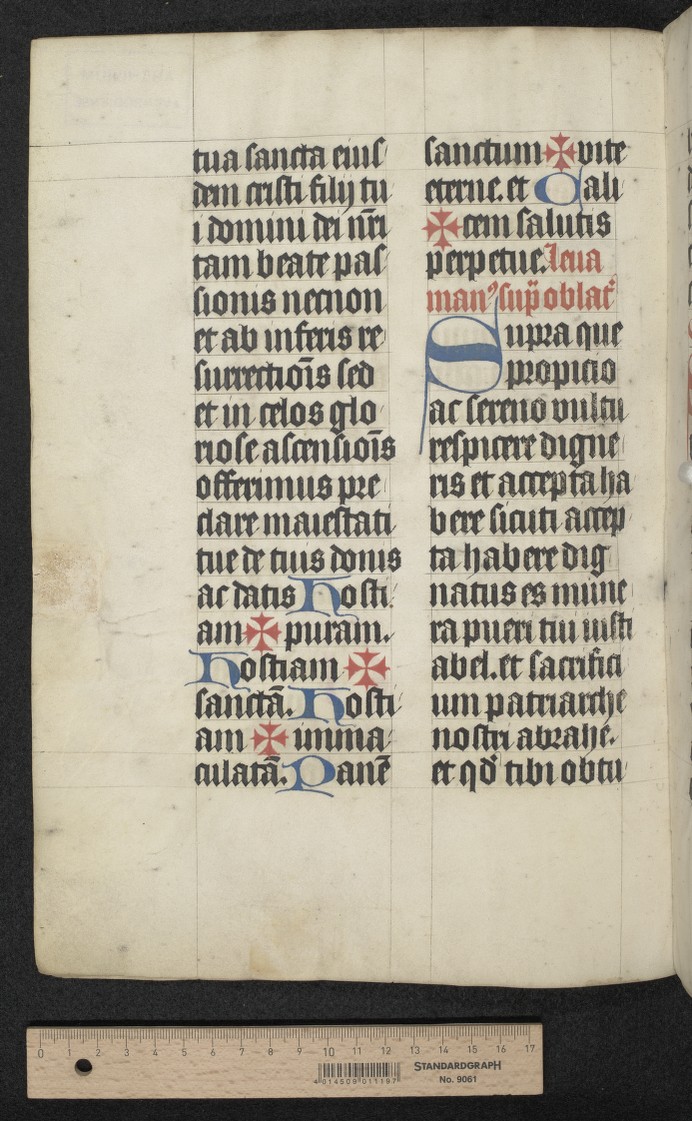 tua sancta eius
dem cristi filij tu
i domini dei nr̄i
tam beate pas
sionis necnon
et ab inferis re
surrectiōis sed
et in celos glo
riose ascensiōis
offerimus pre
clare maiestati
tue de tuis donis
ac datis Hosti
am ✠ puram.
Hostiam ✠
sanctā. Hosti
am ✠ imma
culatā. Panē
sanctum ✠ vite
eterne. et Cali
✠ cem salutis
perpetue. leua
manꝰ sup̄ oblat̄
Supra que
propicio
ac sereno vultu
respicere digne
ris et accepta ha
bere sicuti accep
ta habere dig
natus es mune
ra pueri tui iusti
abel. et sacrifici
um patriarche
nostri abrahe.
et qd̄ tibi obtu
0 1 2 3 4 5 6 7 8 9 10 11 12 13 14 15 16 17
STANDARDGRAPH
No. 9061
4 014509 011197